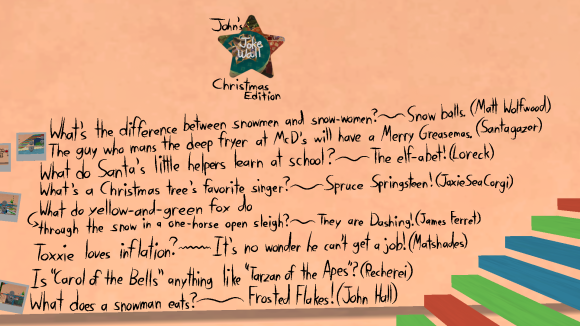 John's
Joke
Wall
Christmas
Edition
What's the difference between snowmen and snow-women?~~Snow balls. (Matt Wolfwood)
The guy who mans the deep fryer at McD's will have a Merry Greasemas. (Santagazer)
What do Santa's little helpers learn at school?~~The elf-abet! (Loreck)
What's a Christmas tree's favorite singer?~~Spruce Springsteen! (JaxieSeaCorgi)
What do yellow-and-green fox do
through the snow in a one-horse open sleigh?~~They are Dashing! (James Ferret)
Toxxie loves inflation?~~It's no wonder he can't get a job! (Matshades)
Is "Carol of the Bells" anything like "Tarzan of the Apes"? (Recherei)
What does a snowman eats?~~Frosted Flakes! (John Hall)